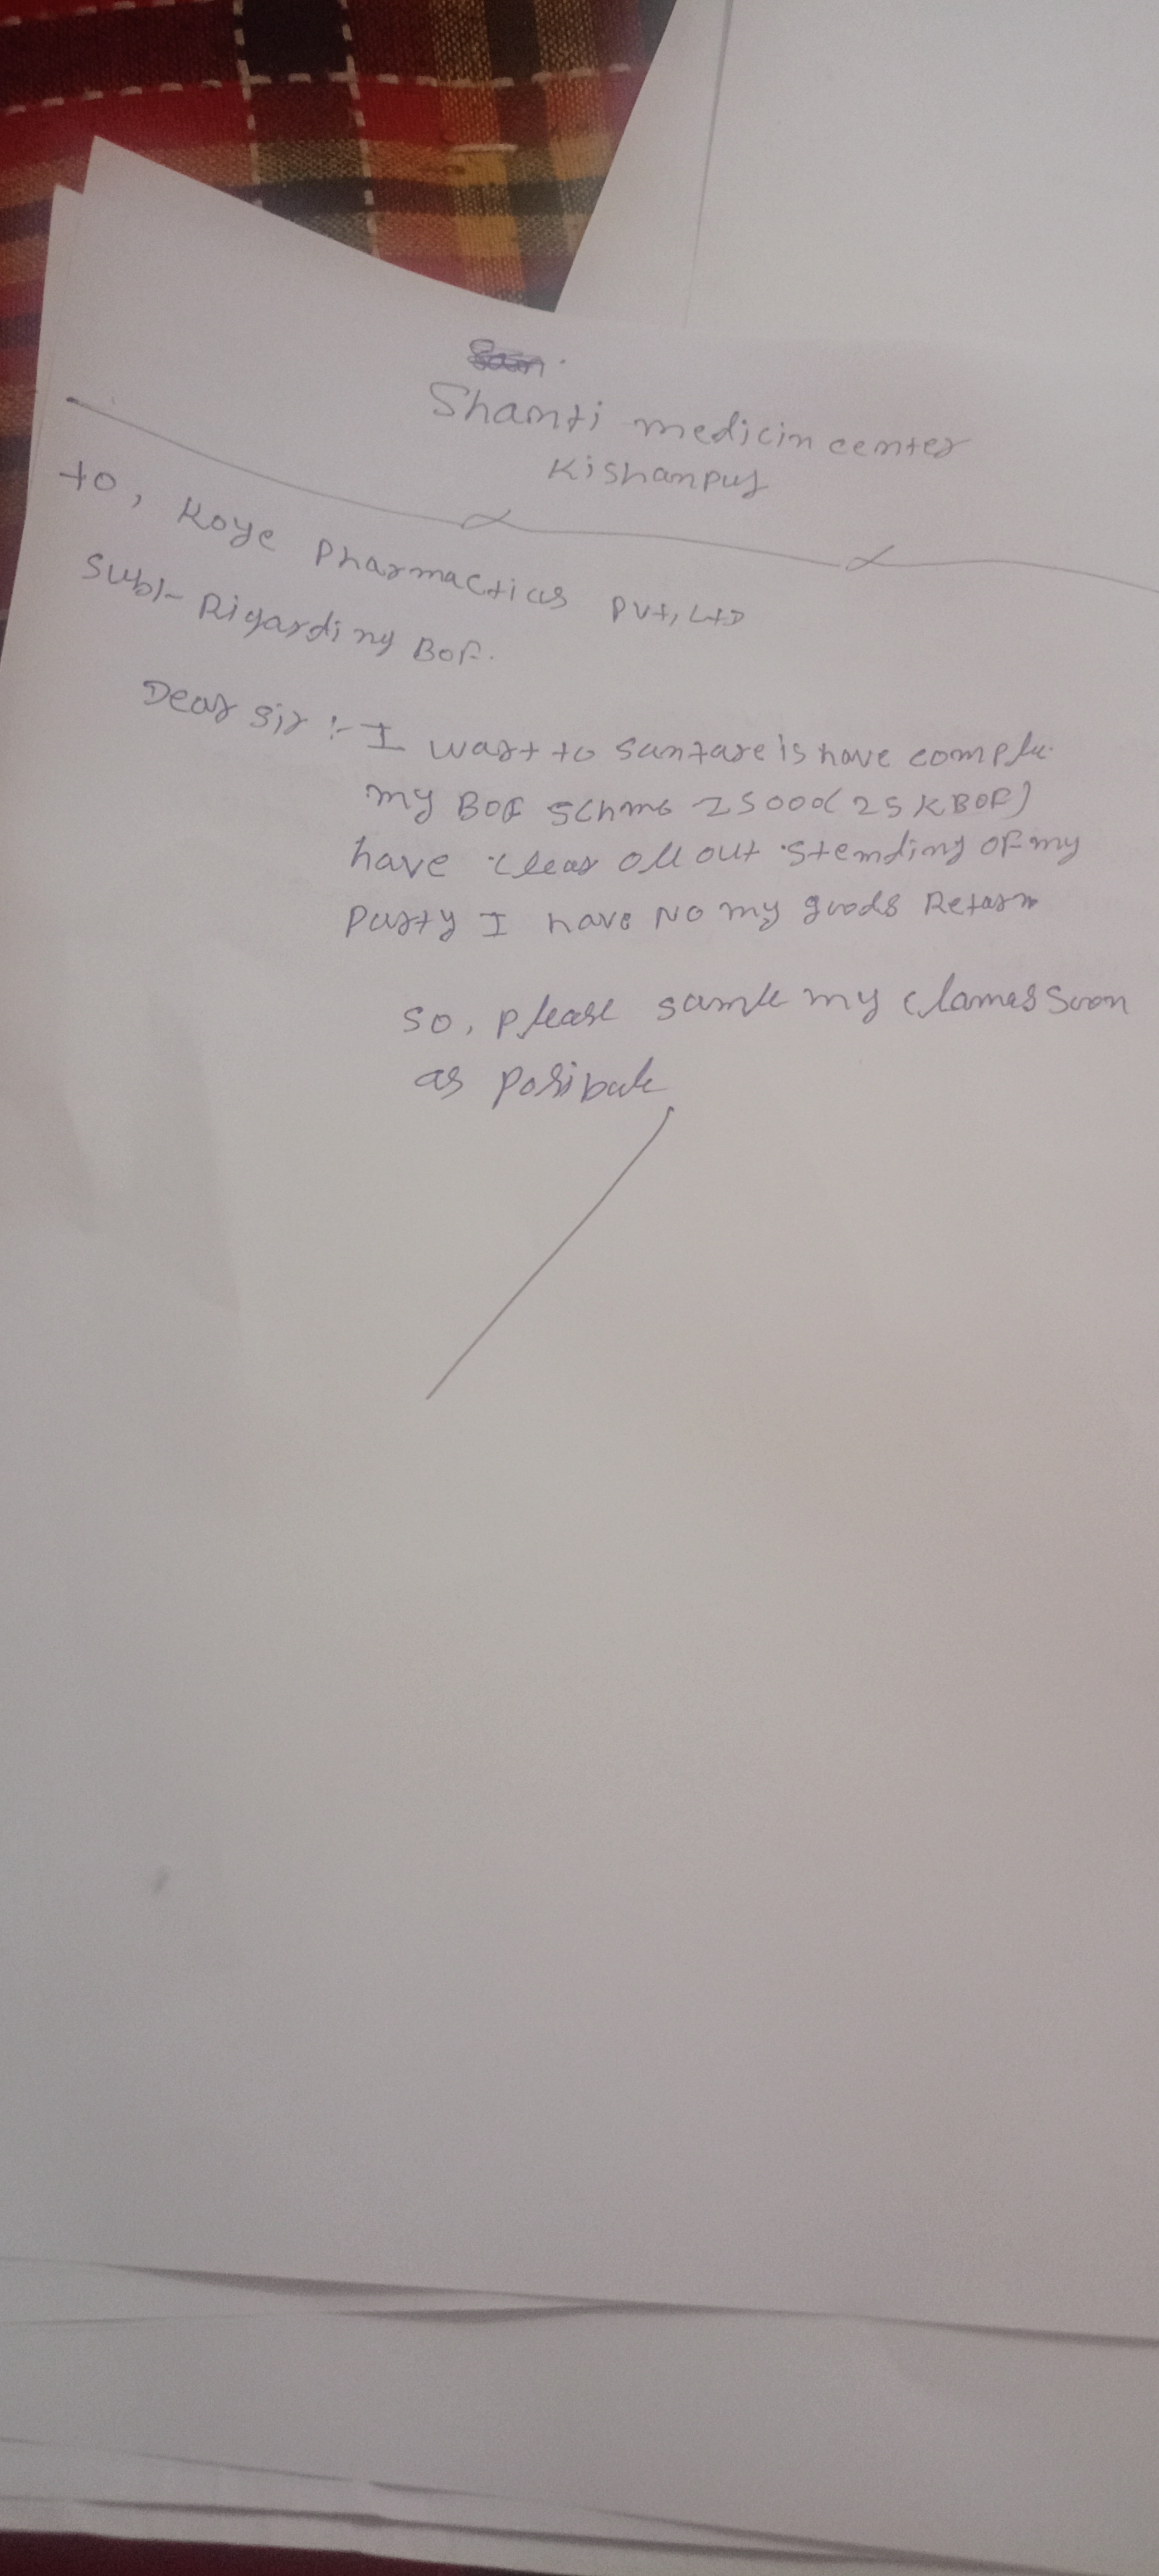 Shanti medicin center
Kishanpur
to, Koye Pharmacticas PVt, LtD
Subl- Rigarding BOF.
Dear Sir :- I want to is have comple
my BOF Schme 25000 (25 K BOF)
have clear all out stending OF my
Party I have No my goods Retarn
so, please my clames Soon
as posibale